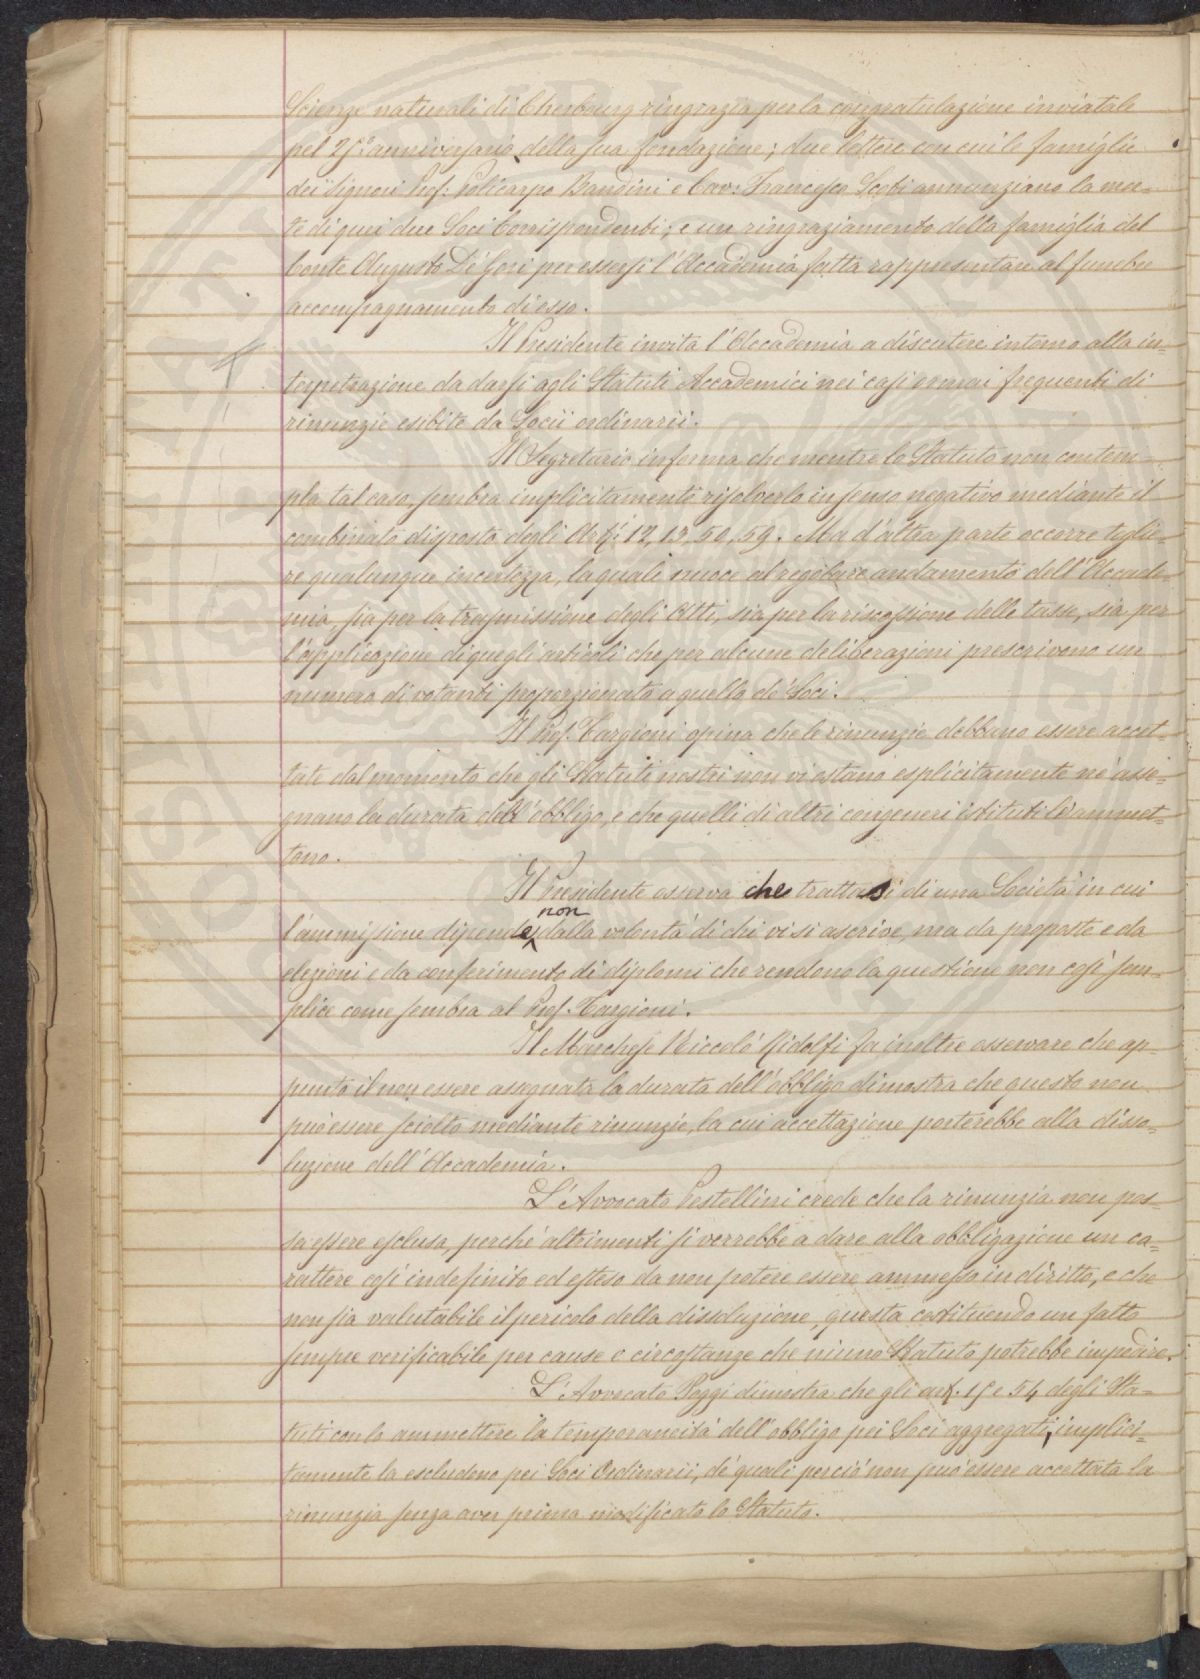 Scienze naturali di Cherbourg ringrazia per la congratulazione inviatale
pel 25.° anniversario della sua fondazione; due lettere con cui le famiglie
dei Signori Prof. Policarpo Bandini e Cav: Francesco Scoti annunziano la mor-
te di quei due Soci Corrispondenti; e un ringraziamento della famiglia del
Conte Augusto De' Gori per essersi l'Accademia fatta rappresentare al funebre
accompagnamento di esso.
Il Presidente invita l'Accademia a discutere intorno alla in-
terpetrazione da darsi agli Statuti Accademici nei casi ormai frequenti di
rinunzie esibite da Socii ordinarii.
Il Segretario informa che mentre lo Statuto non contem-
pla tal caso, sembra implicitamente risolverlo in senso negativo mediante il
combinato disposto degli Art.i 12, 13, 50, 59. Ma d'altra parte occorre toglie-
re qualunque incertezza, la quale nuoce al regolare andamento dell'Accade-
mia, sia per la trasmissione degli Atti, sia per la riscossione delle tasse, sia per
l'applicazione di quegli articoli che per alcune deliberazioni prescrivono un
numero di votanti proporzionato a quello de' Soci.
Il Prof. Targioni opina che le rinunzie debbano essere accet-
tate dal momento che gli Statuti nostri non vi ostano esplicitamente nè asse-
gnano la durata dell'obbligo, e che quelli di altri congeneri istituti le ammet-
tono.
Il Presidente osserva che trattasi di una Società in cui
non
l'ammissione dipende dalla volontà di chi vi si ascrive, ma da proposte e da
elezioni e da conferimento di diplomi che rendono la questione non così sem-
plice come sembra al Prof. Targioni.
Il Marchese Niccolò Ridolfi fa inoltre osservare che ap-
punto il non essere assegnata la durata dell'obbligo dimostra che questo non
può essere sciolto mediante rinunzie, la cui accettazione porterebbe alla disso-
luzione dell'Accademia.
L'Avvocato Pestellini crede che la rinunzia non pos-
sa essere esclusa, perchè altrimenti si verrebbe a dare alla obbligazione un ca-
rattere così indefinito ed esteso da non potere essere ammesso in diritto, e che
non sia valutabile il pericolo della dissoluzione, questa costituendo un fatto
sempre verificabile per cause e circostanze che niuno Statuto potrebbe impedire.
L'Avvocato Poggi dimostra che gli art. 15 e 54 degli Sta-
tuti con lo ammettere la temporaneità dell'obbligo pei Soci aggregati, implici-
tamente la escludono pei Soci Ordinarii, de' quali perciò non può essere accettata la
rinunzia senza aver prima modificato lo Statuto.